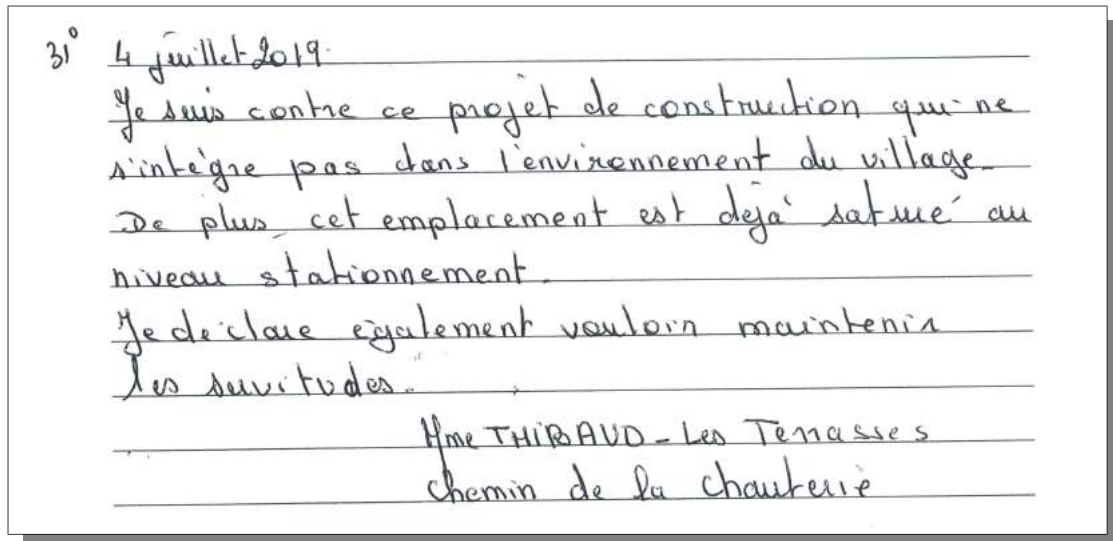 31° 4 juillet 2019.
Je suis contre ce projet de construction qui ne
s'intègre pas dans l'environnement du village.
De plus, cet emplacement est déjà saturé au
niveau stationnement.
Je déclare également vouloir maintenir
les servitudes.
Mme THIBAUD - Les Terrasses
chemin de la chauterie